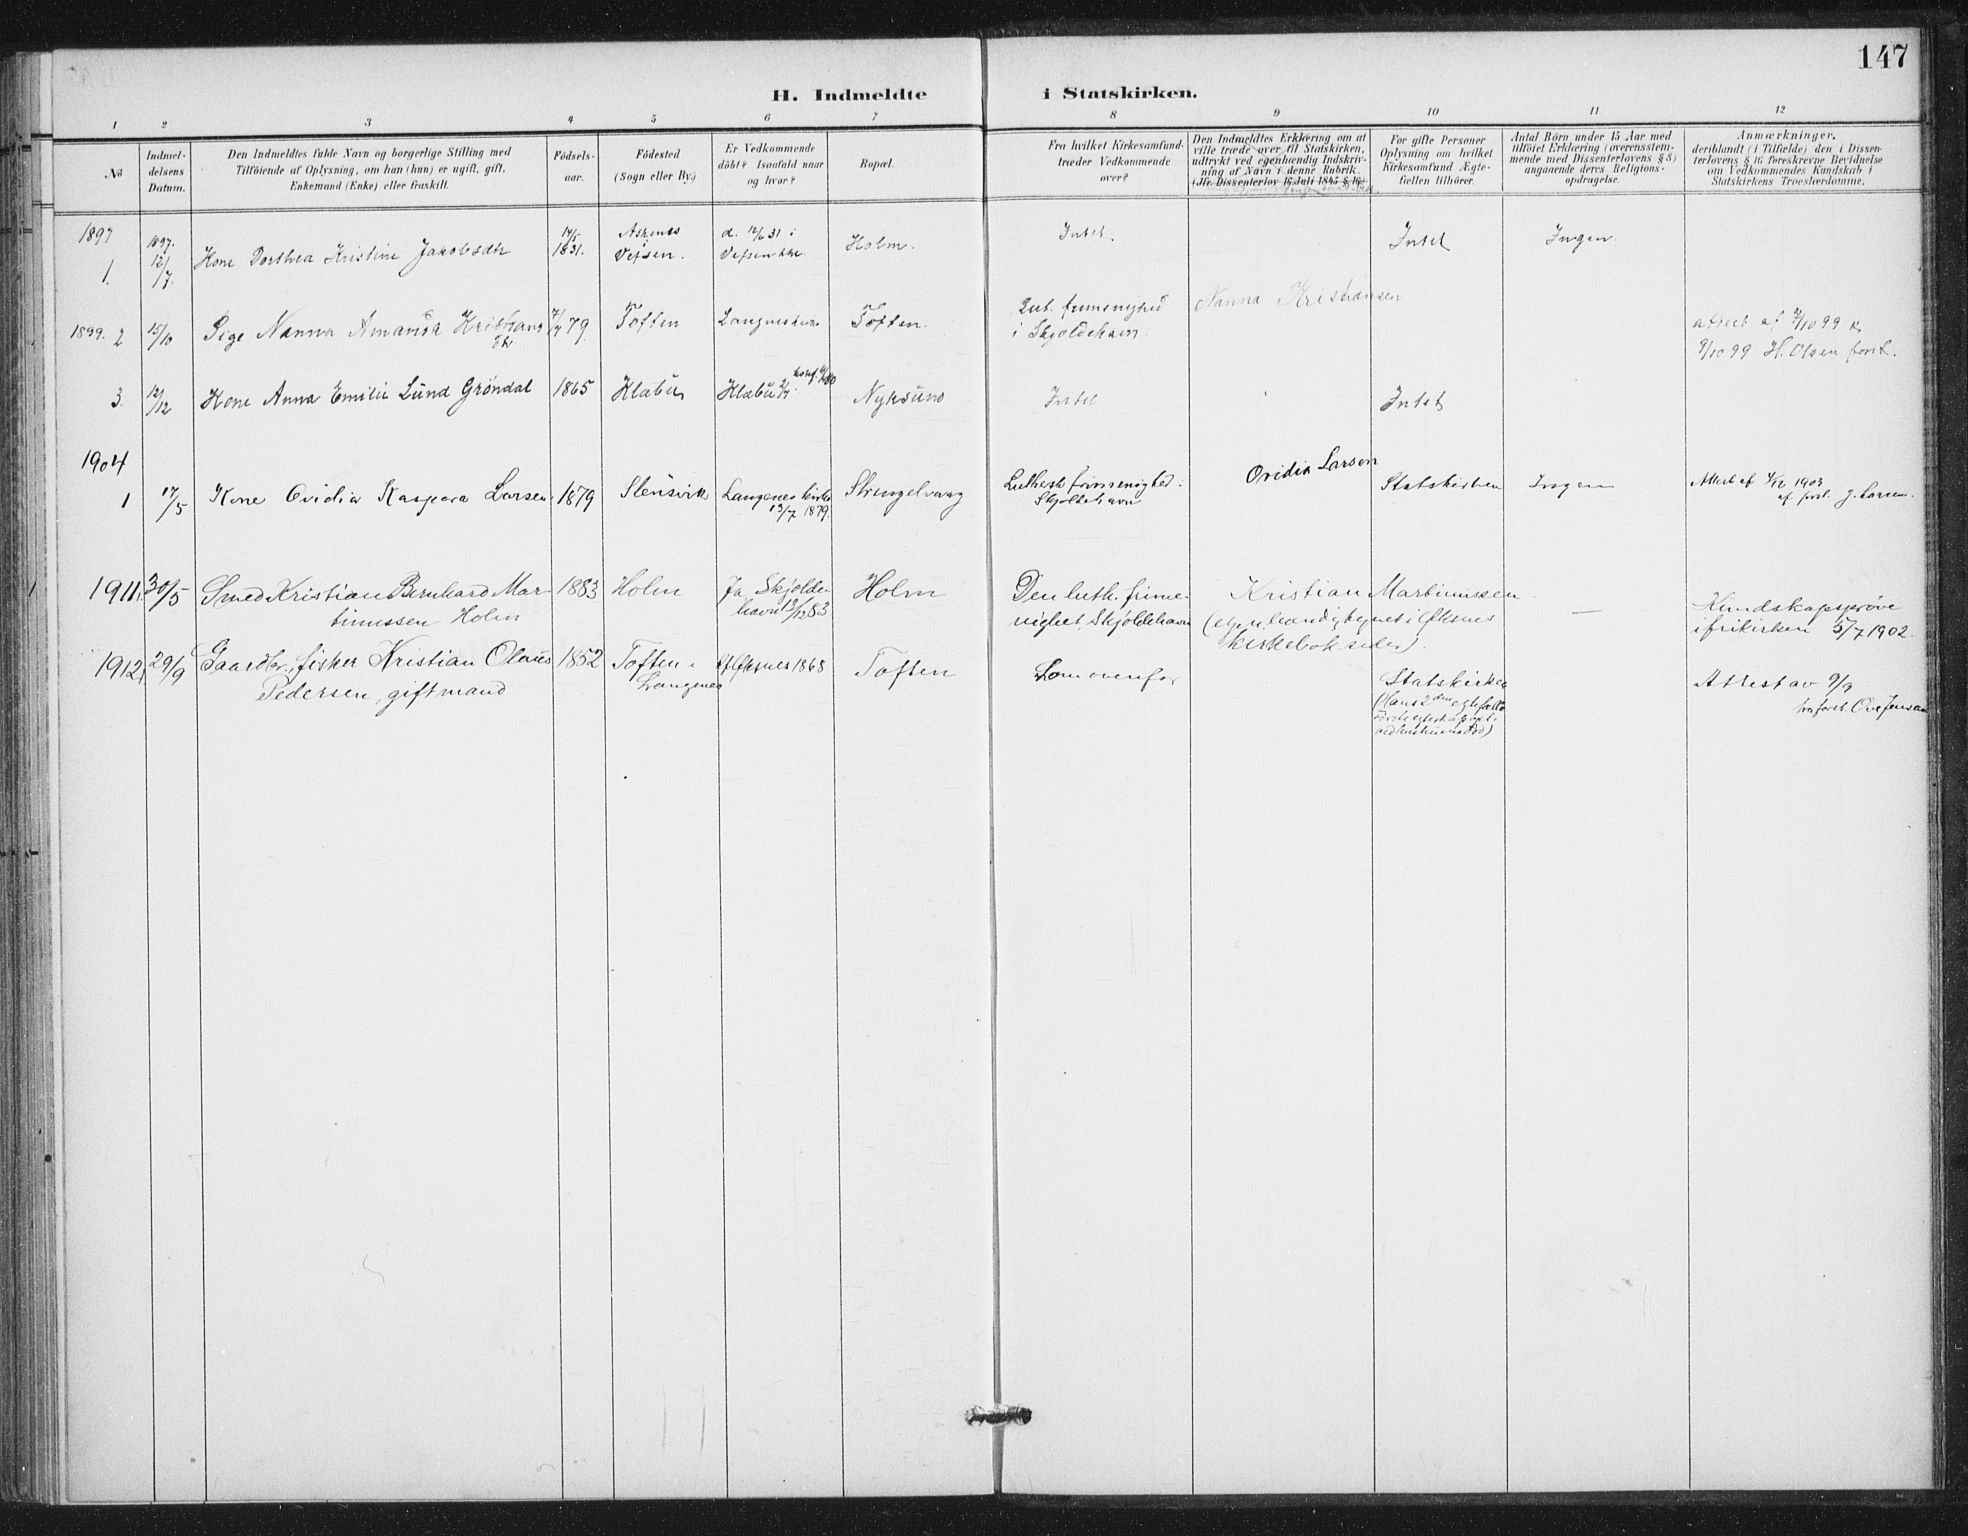 147
H. Indmeldte i Statskirken.
1 2 3 4 5 6 7 8 9 10 11 12
No
Indmel-
delsens
Datum.
Den Indmeldtes fulde Navn og borgerlige Stilling med
Tilföiende af Oplysning, om han (hun) er ugift, gift,
Enkemand (Enke) eller fraskilt.
Födsels-
aar.
Födested
(Sogn eller By.)
Er Vedkommende
döbt? Isaafald naar
og hvor?
Bopæl.
Fra hvilket Kirkesamfund
træder Vedkommende
over?
Den Indmeldtes Erklæring om at
ville træde over til Statskirken,
udtrykt ved egenhændig Indskriv-
ning af Navn i denne Rubrik.
(Jfr. Dissenterlov 16 Juli 1845 § 16)
For gifte Personer
Oplysning om hvilket
Kirkesamfund Ægte-
fællen tilhörer.
Antal Börn under 15 Aar med
tilföiet Erklæring (overensstem-
mende med Dissenterlovens § 8)
angaaende deres Religions-
opdragelse.
Anmærkninger,
deriblandt (i Tilfælde) den i Dissen-
terlovens § 16 foreskrevne Bevidnelse
om Vedkommendes Kundskab i
Statskirkens Troeslærdomme.
1897
1.
1897.
12/
/7.
Kone Dorthea Kristine Jakobsdtr
1831.
Vefsen.
d. 12/6 31 i
Vefsen kke
Holm.
Intet.
Intet
Ingen.
1899. 2
15/10
Pige Nanna Amanda Kristians
dtr
79.
Toften
Langnes
Toften.
Lut. frimenighed
i Skjoldehavn.
Nanna Kristiansen
attest af 7/10 99
9/10 99 H. Olsen forst.
3.
12/12
Kone Anna Emilie Lund Gröndal
1865
Klæbu
Klæbu
Nyksund
Intet
Intet
1904
1
17/5
Kone Ovidia Kaspara Larsen
1879
Stensvik
Langenes kirke
13/7 1879.
Strengelvaag
Luthersk frimenighed.
Skjoldehavn
Ovidia Larsen
Statskirken
Ingen
Attest af 1903
af forst. J. Larsen.
1911.
30/5
Smed Kristian Bernhard Mar-
tinussen Holm
1883
Holm
Ja, Skjolde-
havn 13/12 83
Holm
Den luth. frime-
nighet, Skjoldehavn
Kristian Martinussen
(egenhændig tegnet i Øksnes
kirkebok sidea).
—
Kundskapsprøve
i frikirken 5/7 1902.
1912.
29/9
Gaardbr., fisker Kristian Olaus
Pedersen, gift mand
1852
Toften
Langenes
Øksnes 1868
Toften
Som ovenfor
Statskirken
(Hans 2den egtefælle
Attest av 9/9
fra forst. Ove Jensen